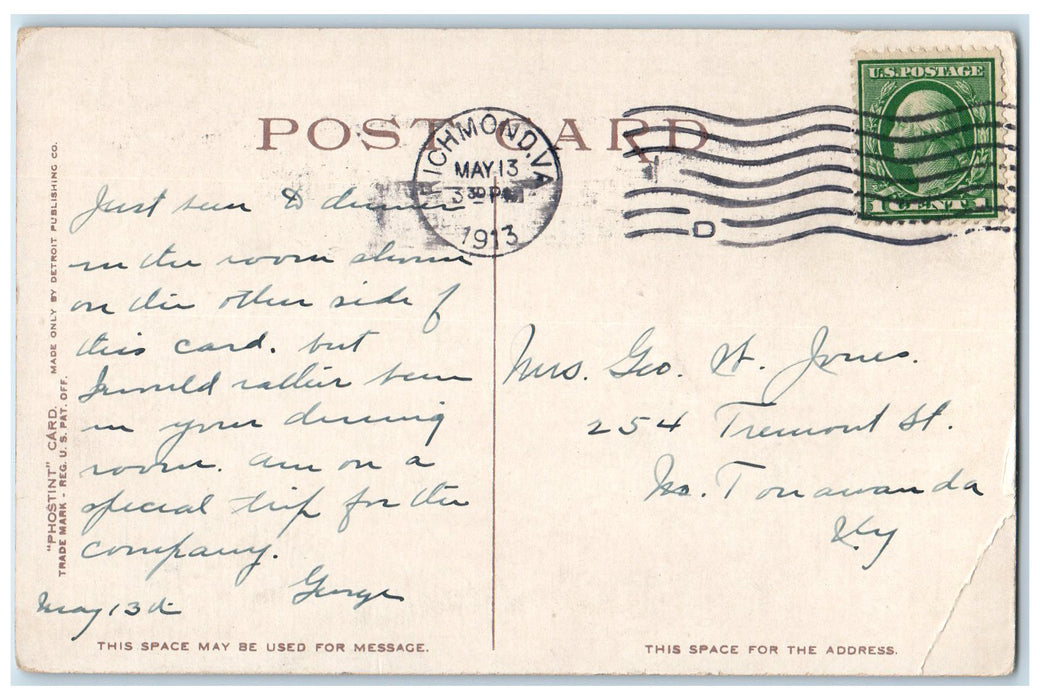 POST CARD
RICHMOND, VA
MAY 13
3 30 PM
1913
D
U.S. POSTAGE
1 CENT 1
"PHOSTINT" CARD. MADE ONLY BY DETROIT PUBLISHING CO.
TRADE MARK - REG. U. S. PAT. OFF.
Just seen to dinner
in the room shown
on the other side of
this card. but
I would rather been
in your dining
room. am on a
special trip for the
company.
George
May 13th
Mrs. Geo. W. Jones.
254 Tremont St.
No. Tonawanda
THIS SPACE MAY BE USED FOR MESSAGE.
THIS SPACE FOR THE ADDRESS.